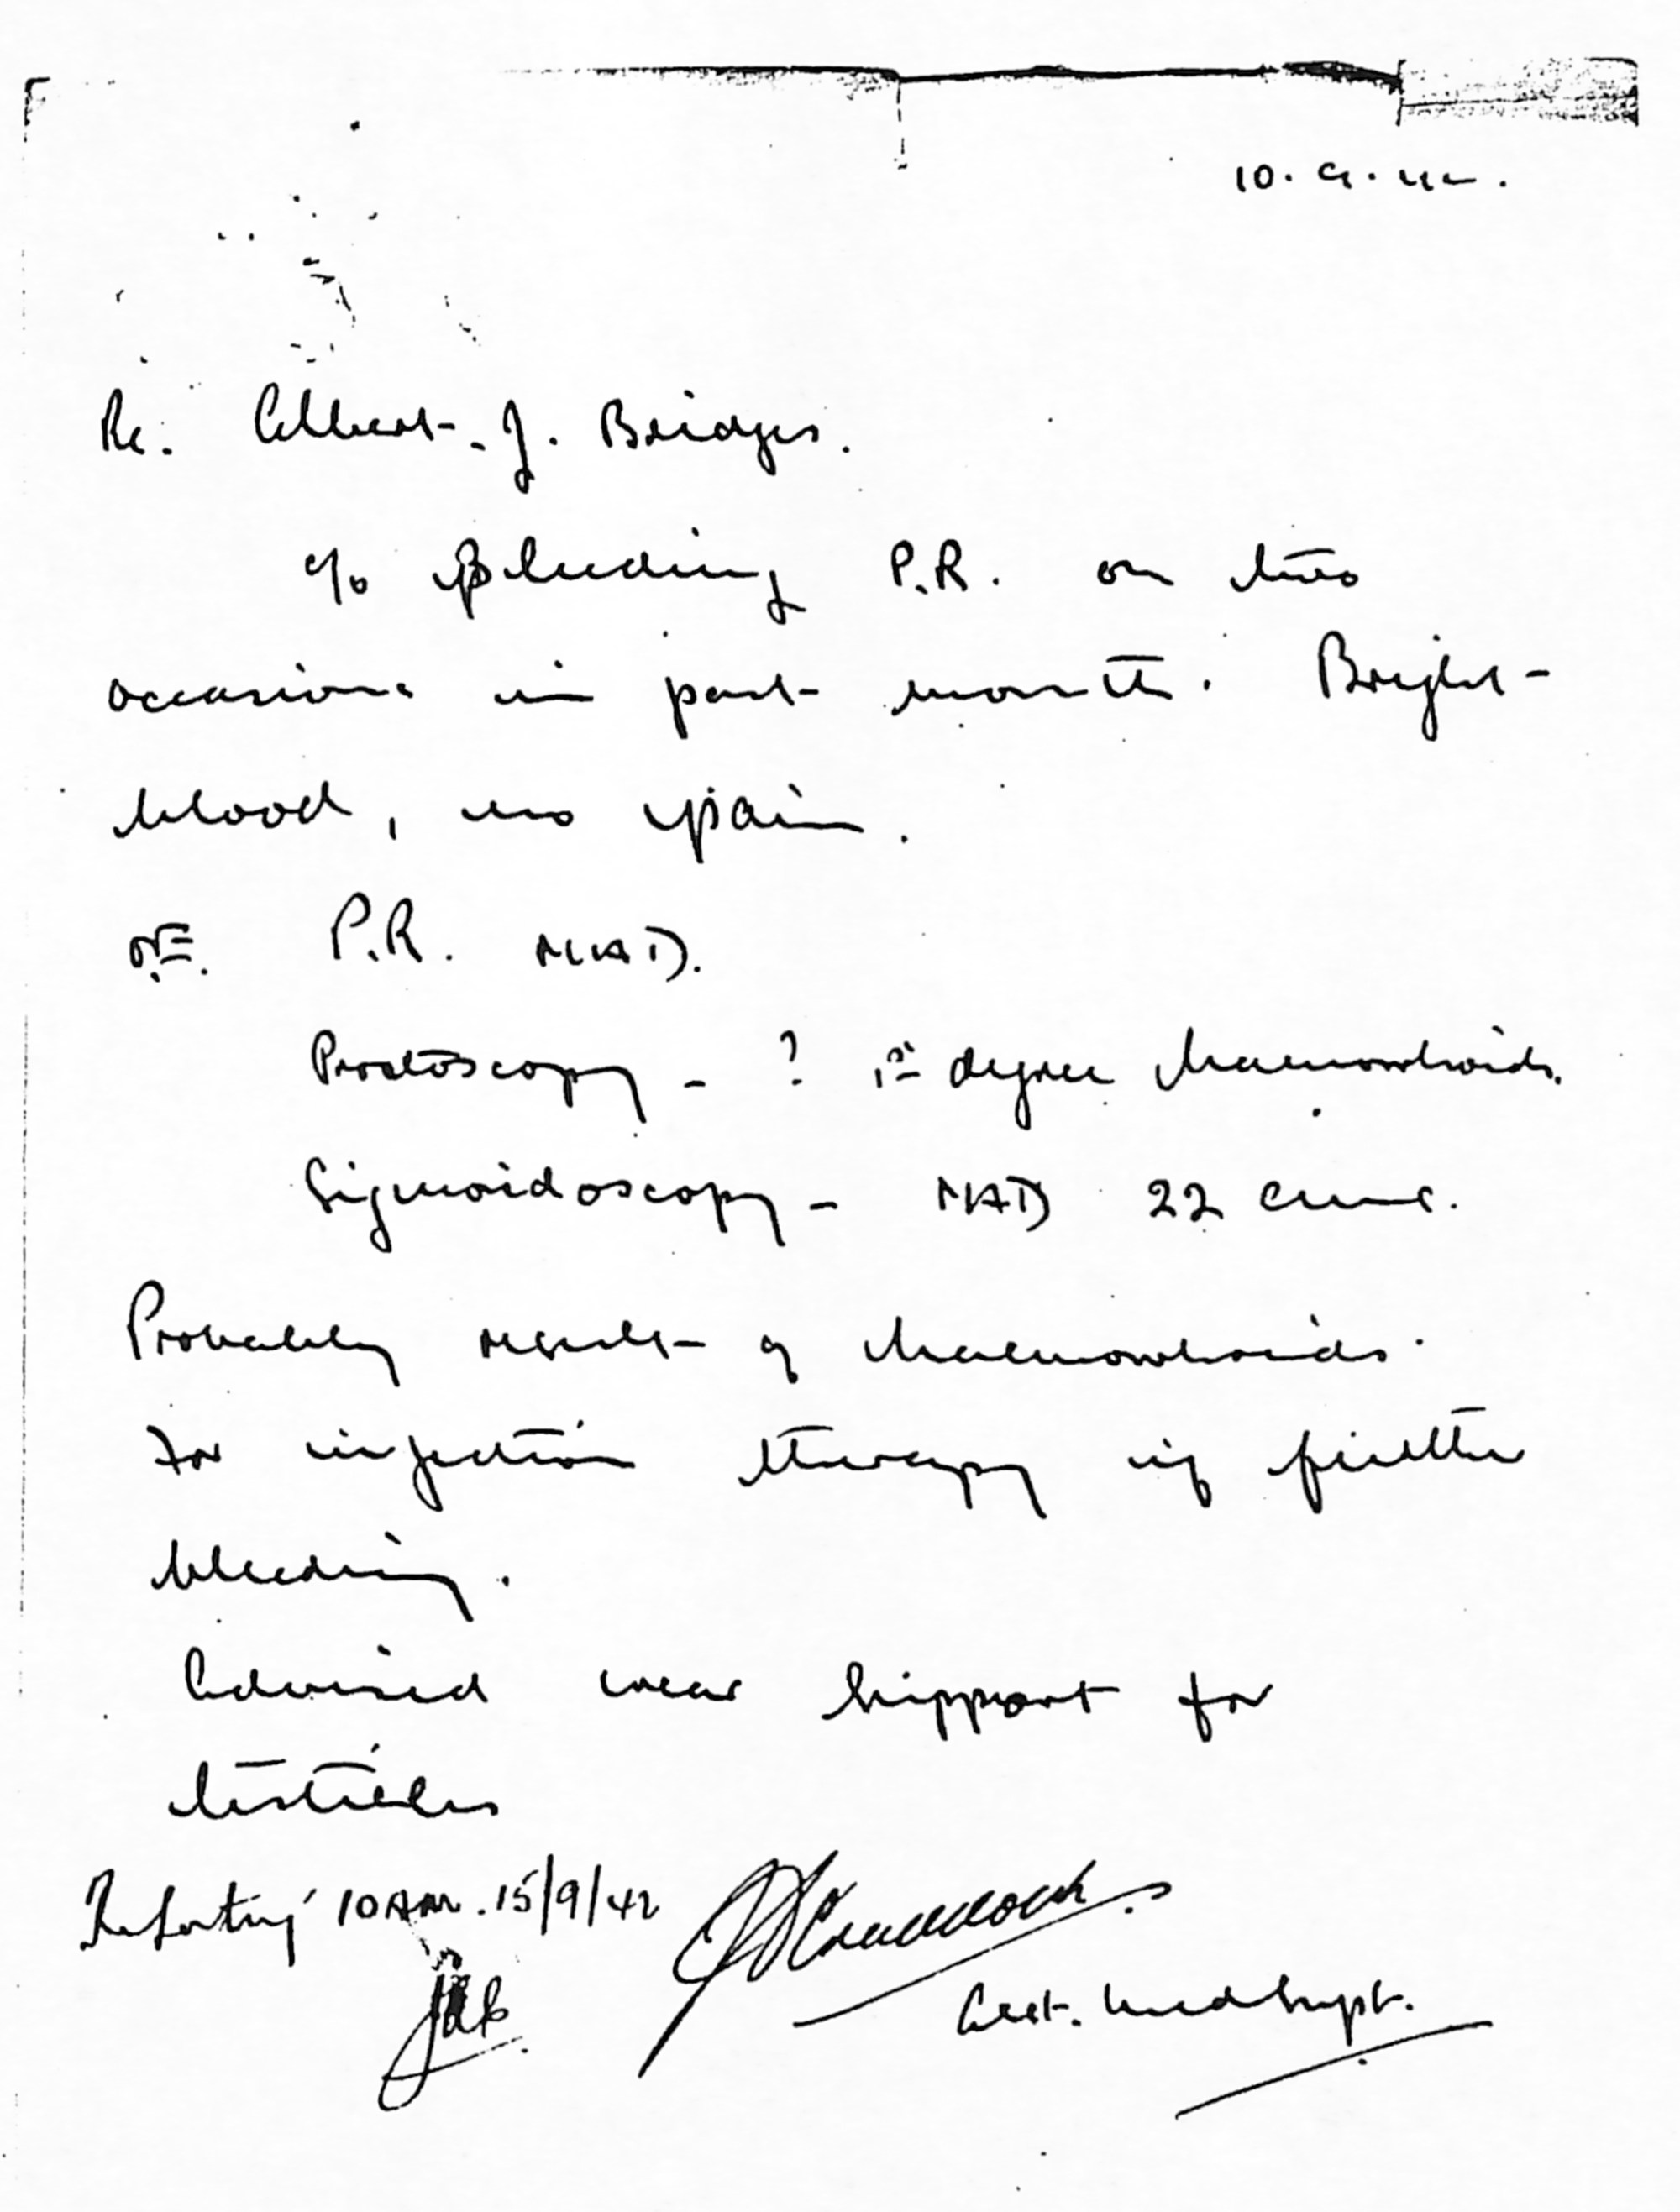 10.9.42.
Re: Albert. J. Bridges.
c/o Bleeding P.R. on two
occasions in past month. Bright
blood, no pain.
O.E. P.R. NAD.
Proctoscopy - ? 1st degree haemorrhoids.
Sigmoidoscopy - NAD 22 cms.
Probably result of haemorrhoids.
For injection therapy if further
bleeding.
Advised wear support for
testicles
10 AM. 15/9/42
Asst. Med Supt.